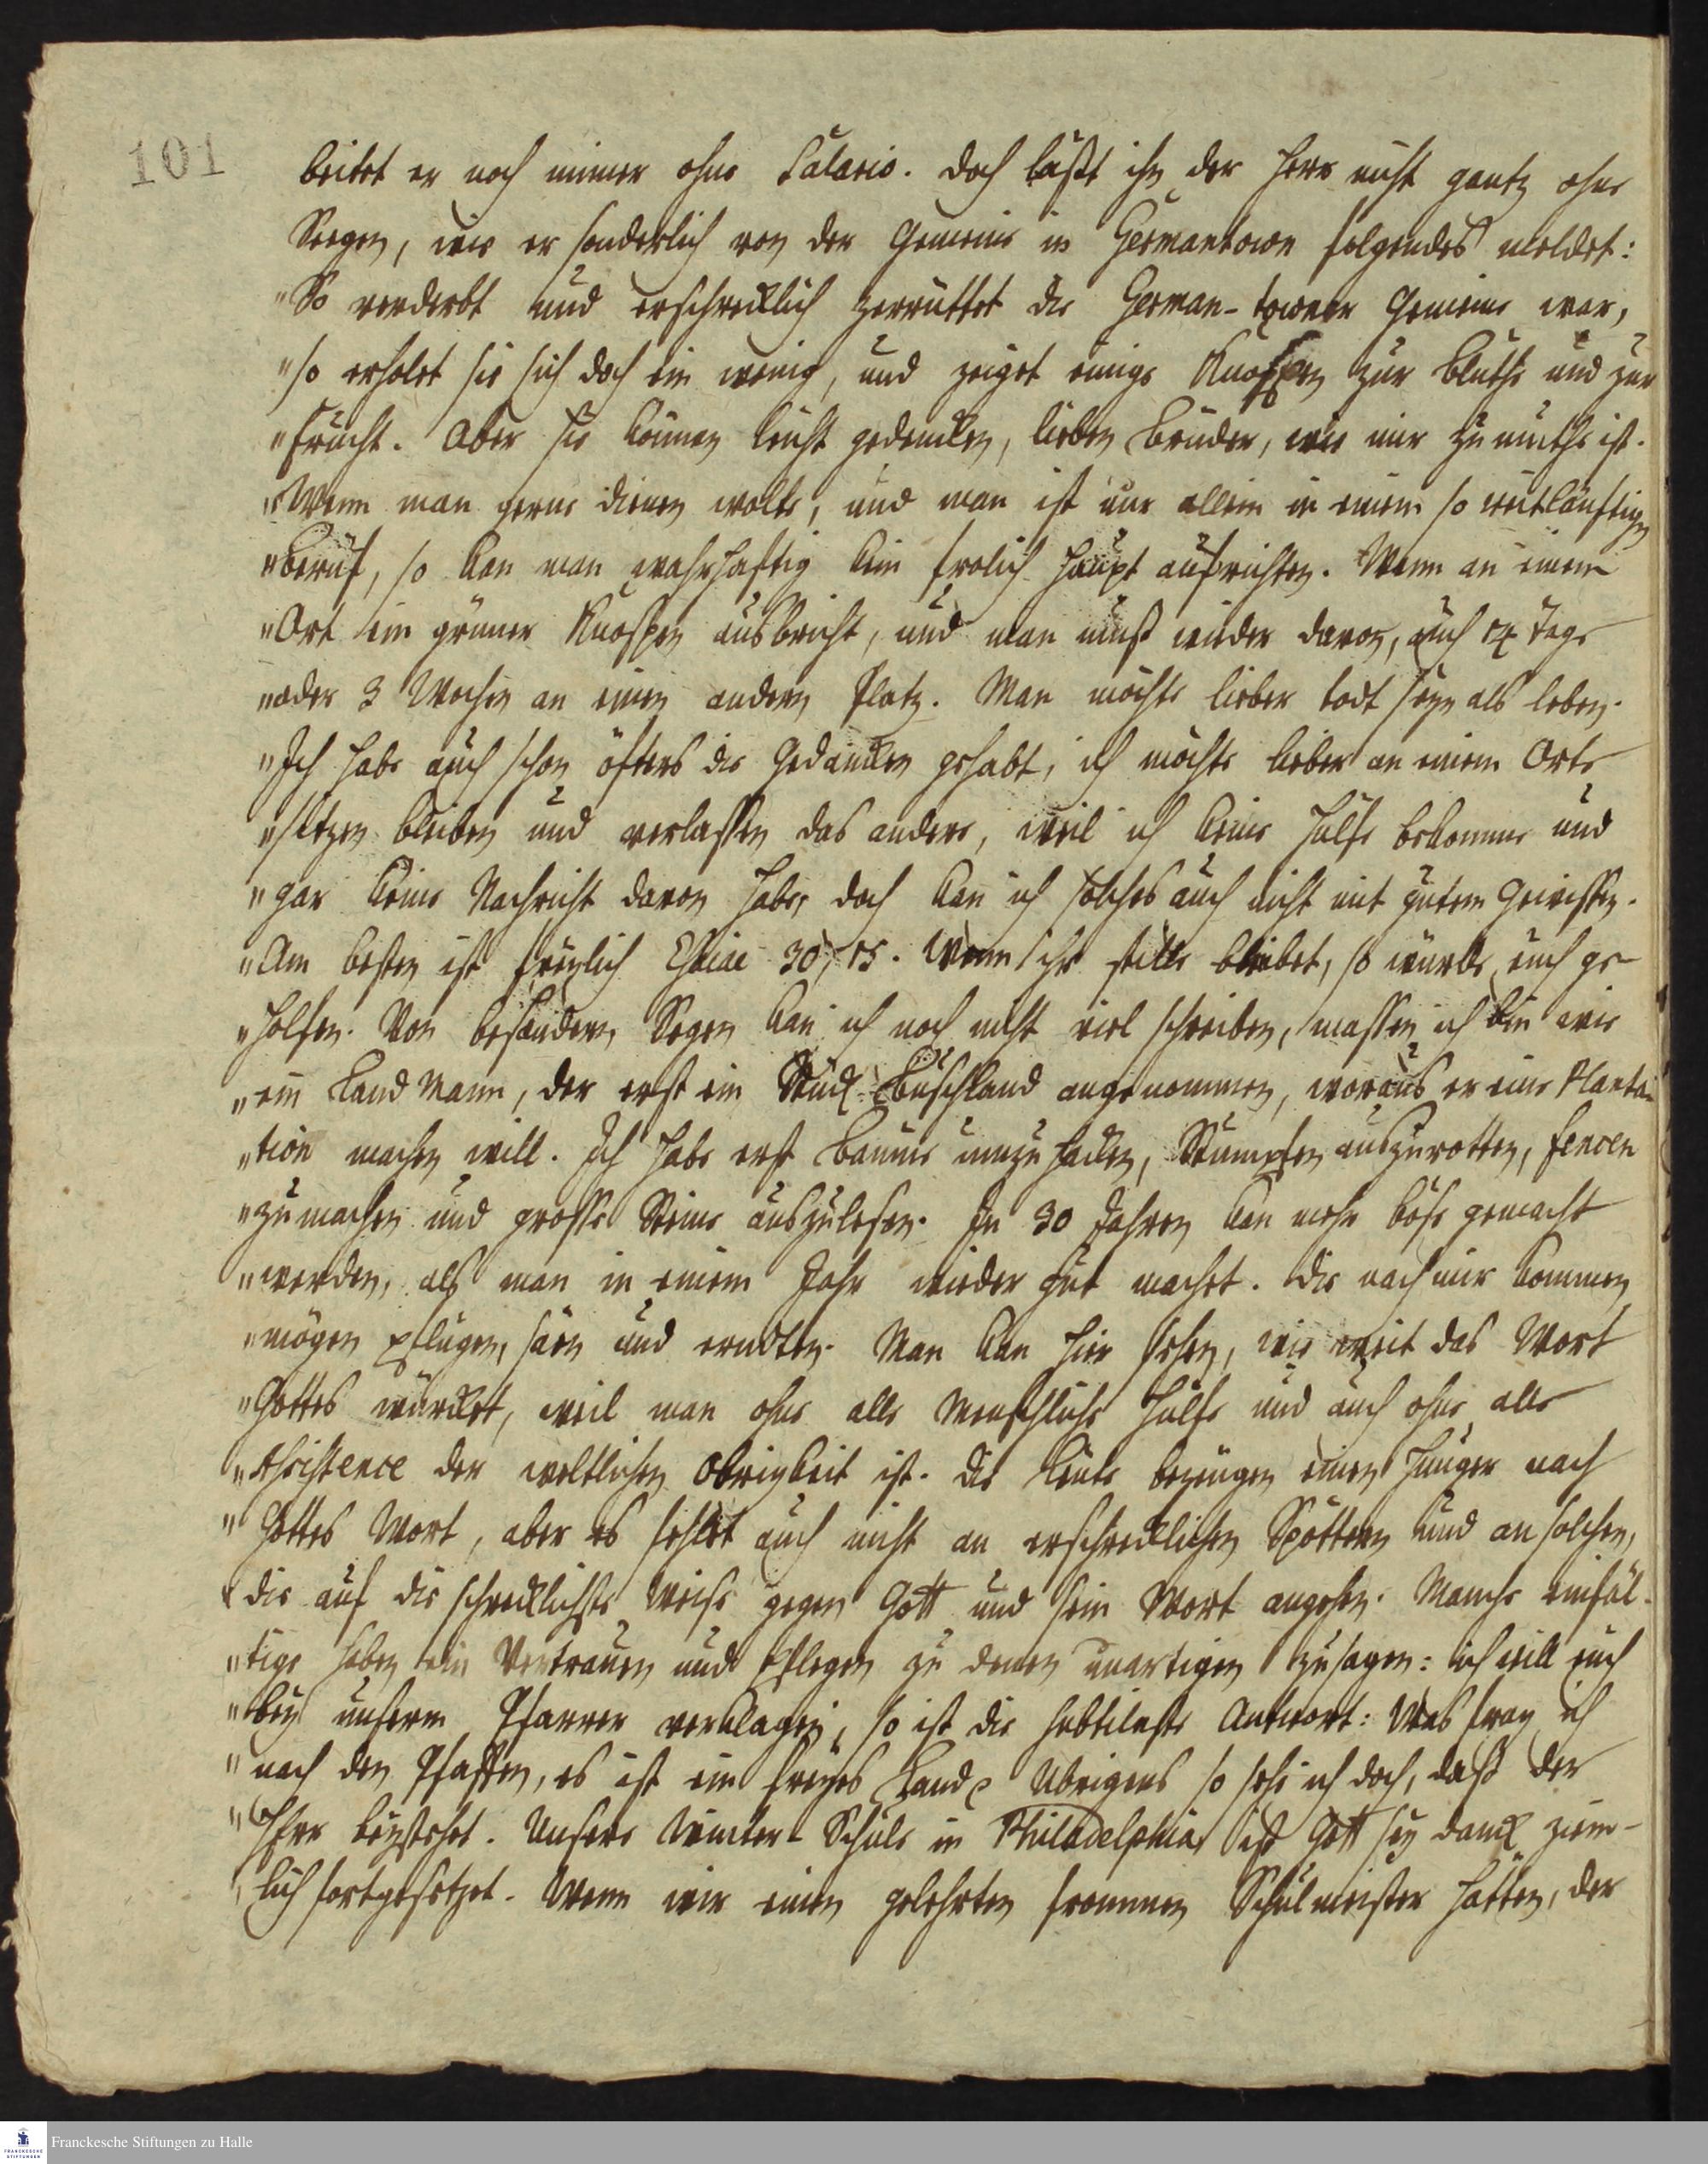 101
beitet er noch immer ohne Salario. Doch läßt ihn der Herr nicht gantz ohne
Seegen, wie er sonderlich von der Gemeine in Germantown folgendes meldet:
"So verderbt und erschrecklich zerrüttet die German-towner Gemeine war,
"so erholet sie sich doch ein wenig, und zeiget einige Knospen zur Blüthe und zur
"Frucht. Aber sie können leicht gedencken, lieben Brüder, wie mir zu muthe ist.
"Wenn man gerne dienen wolte, und man ist nur allein in einem so weitläuftigen
"Beruf, so kan man wahrhaftig kein frolich Haupt aufrichten. Wenn an einem
"Ort ein grüner Knospen ausbricht, und man muß wieder davon, auch 14 Tage
"oder 3 Wochen an einen andern Platz. Man möchte lieber todt seyn als leben.
"Ich habe auch schon öfters die Gedancken gehabt, ich möchte lieber an einem Orte
"sitzen bleiben und verlassen das andere, weil ich keine Hülfe bekomme und
"gar keine Nachricht davon habe, doch kan ich solches auch nicht mit gutem Gewissen.
"Am besten ist freylich Esaiae 30, 15. Wenn ihr stille bleibet, so würde euch ge-
"holfen. Von besondern Segen kan ich noch nicht viel schreiben, massen ich bin wie
"ein Land Mann, der erst ein Stück Buschland angenommen, woraus er eine Planta-
"tion machen will. Ich habe erst Bäume umzuhacken, Stumpfen auszurotten, Fencen
"zu machen und grosse Steine auszulesen. In 30 Jahren kan mehr böse gemacht
"werden, als man in einem Jahr wieder gut machet. Die nach mir kommen
"mögen pflügen, säen und erndten. Man kan hier sehen, wie weit das Wort
"Gottes würcket, weil man ohne alle Menschliche Hülfe und auch ohne alle
"Assistence der weltlichen Obrigkeit ist. Die Leute bezeugen einen Hunger nach
"Gottes Wort, aber es fehlet auch nicht an erschrecklichen Spöttern und an solchen,
"die auf die schrecklichste Weise gegen Gott und sein Wort angehen. Manche einfäl-
"tige haben ein Vertrauen und pflegen zu denen unartigen zu sagen: ich will euch
"bey unserm Pfarrer verklagen, so ist die subtileste Antwort: Was frag ich
"nach den Pfaffen, es ist ein freyes Land. Ubrigens so sehe ich doch, daß der
"Herr beystehet. Unsere Winter-Schule in Philadelphia ist Gott sey danck ziem-
"lich fortgesetzet. Wenn wir einen gelehrten frommen Schulmeister hätten, der
FRANCKESCHE
STIFTUNGEN
Franckesche Stiftungen zu Halle